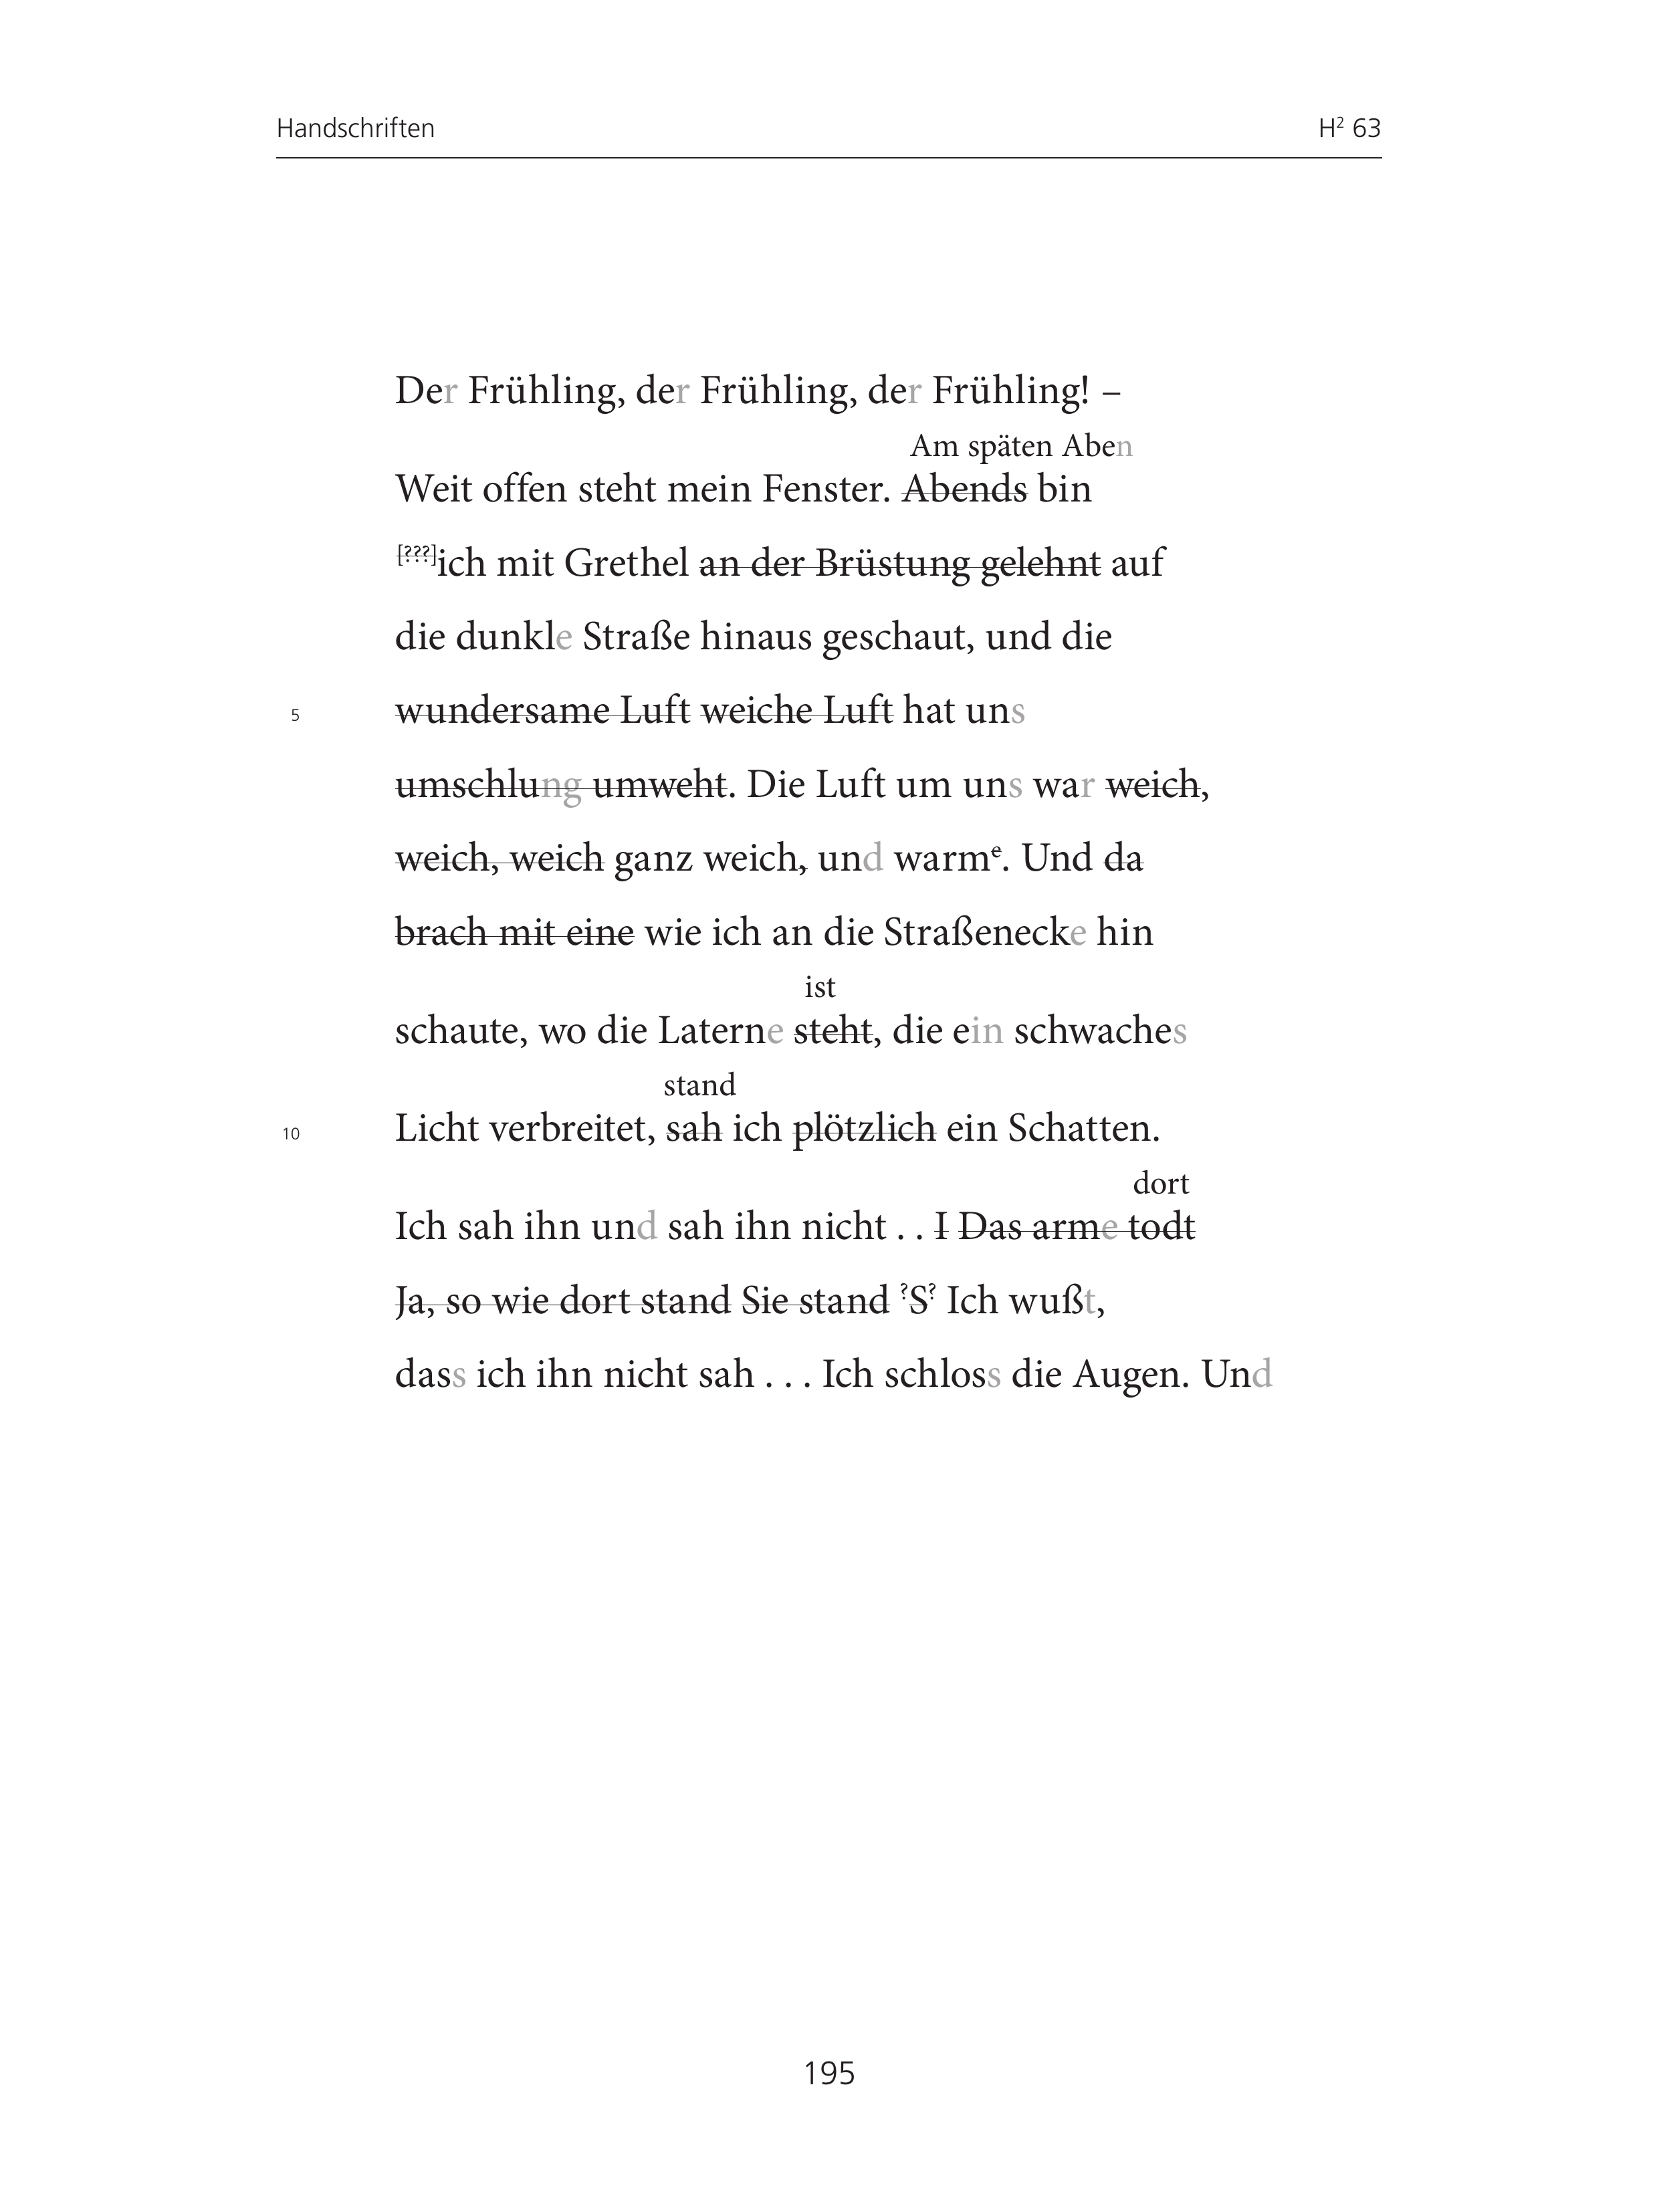 Handschriften H² 63
Der Frühling, der Frühling, der Frühling! –
Am späten Aben
Weit offen steht mein Fenster. Abends bin
[???]ich mit Grethel an der Brüstung gelehnt auf
die dunkle Straße hinaus geschaut, und die
5 wundersame Luft weiche Luft hat uns
umschlung umweht. Die Luft um uns war weich,
weich, weich ganz weich, und warmᵉ. Und da
brach mit eine wie ich an die Straßenecke hin
ist
schaute, wo die Laterne steht, die ein schwaches
stand
10 Licht verbreitet, sah ich plötzlich ein Schatten.
dort
Ich sah ihn und sah ihn nicht . . I Das arme todt
Ja, so wie dort stand Sie stand ?S? Ich wußt,
dass ich ihn nicht sah . . . Ich schloss die Augen. Und
195